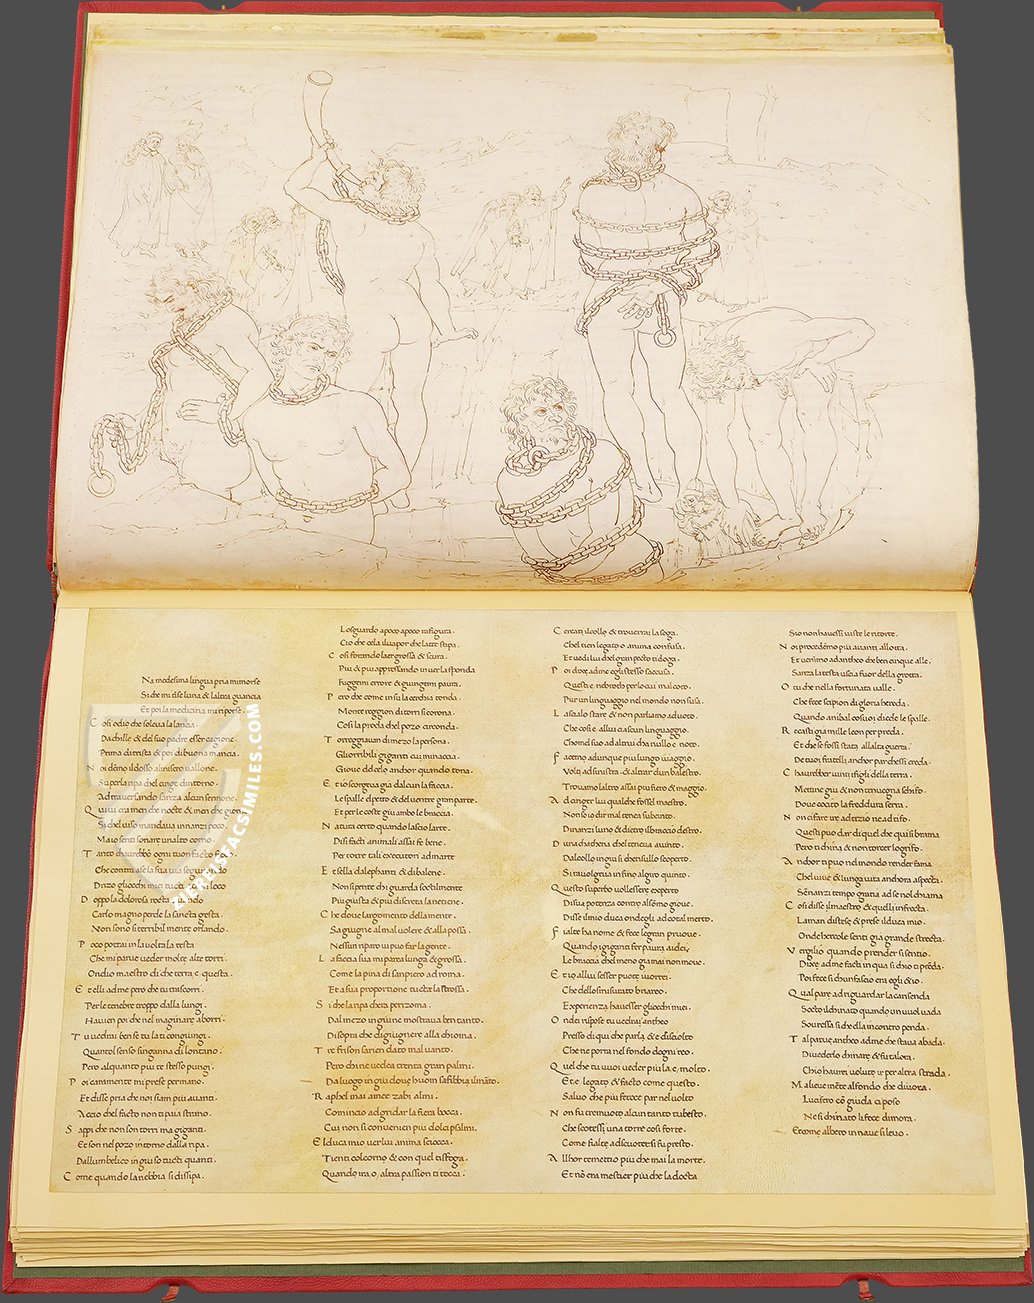 Na medesima lingua pria mimorse
Si che mi tise luna & laltra guancia
Et poi la medicina mi riporse
C osi odio che soleva la lancia
Dachille & del suo padre esser cagione
Prima di trista & poi di buona mancia
N oi demo ildosso almisero vallone
Superla ripa chel cinge dintorno
Adtraversando sanza alcun sermone
Q uivi era men che nocte & men che giorno
Si chel viso mandava innanzi poco
Ma io senti sonare unalto corno
T anto chaurebbe ogni tuon facto fioco
Che contra se la sua via seguitando
Drizo gliocchi miei tucti loco
D oppo la dolorosa rocta quando
Carlo magno perde la sancta gesta
Non sono si terribil mente orlando
P oco portai in la volta la testa
Che mi parve veder molte alte torri
Ondio maestro di che terra e questa
E t elli adme pero che tu trascorri
Per le tenebre troppo dalla lungi
Havien poi che nel imaginare aborri
T u vedrai ben se tu la ti congiungi
Quantol senso singanna di lontano
Pero alquanto piu te stesso pungi
P oi caramente mi prese per mano
Et disse pria che noi siam piu avanti
Accio chel facto non ti paia strano
S appi che non son torri ma giganti
Et son nel pozo intorno dalla ripa
Dallumbelico in giuso tucti quanti
C ome quando la nebbia si dissipa
Losguardo apoco apoco rafigura
Cio che cela ilvapor che laere stipa
C osi forando laer grossa & scura
Piu & piu appressando in ver la sponda
Fuggimi errore & giungemi paura
P ero che come in su la cerchia tonda
Monte reggion di torri si corona
Cosi la proda chel pozo circonda
T orreggiavan di mezo la persona
Gliorribili giganti cui minaccia
Giove del cielo anchor quando tona
E t io scorgeva gia dalcun la faccia
Le spalle el pecto & del ventre gran parte
Et per le coste giu ambo le braccia
N atura certo quando lascio larte
Di si facti animali assai fe bene
Per torre tali executori ad marte
E t sella dalephanti & di balene
Non si pente chi guarda soctilmente
Piu giusta & piu discreta la ne tiene
C he dove largomento della mente
Sa giugne al mal volere & alla possa
Nessun riparo vi puo far la gente
L a faccia sua mi parea lunga & grossa
Come la pina di san piero ad roma
Et a sua proportione tucta la strossa
S i che la ripa chera perizoma
Dal mezo in giu ne mostrava ben tanto
Di sopra che di giugnere alla chioma
T re frison sarien dato mal vanto
Pero chi ne vedea trenta gran palmi
Da luogo in giu dove huom saffibbia ilmanto
R aphel mai amec zabi almi
Comincio ad gridar la fiera bocca
Cui non si convenien piu dolci psalmi
E lduca mio ver lui anima sciocca
Tienti colcorno & con quel ti sfoga
Quando ira o altra passion ti tocca
C ercati ilcollo & troverrai la soga
Chel tien legato o anima confusa
Et vedi lui chel gran pecto ti doga
P oi dixe adme egli stesso saccusa
Queste nebroth per lo cui mal coto
Pur un linguaggio nel mondo non susa
L ascialo stare & non parliamo advoto
Che cosi e allui ciascun linguaggio
Chomel suo ad altrui cha nullo e noto
F acemo adunque piu lungo viaggio
Volti ad sinistra & altrar dun balestro
Trovamo laltro assai piu fiero & maggio
A d cinger lui qualche fossel maestro
Non so io dir ma el tenea subinto
Dinanzi luno & dietro ilbraccio destro
D una chathena chel tenea avinto
Dalcollo ingiu si chen sullo scoperto
Si ravolgeva in fino algiro quinto
Q uesto superbo volle essere experto
Di sua potenza contra alsommo giove
Disse ilmio duca ondegli ad cotal merto
F ialte ha nome & fece le gran pruove
Quando igiganti fer paura aidei
Le braccia chel meno gia mai non move
E t io allui sesser puote io vorrei
Che dello smisurato briareo
Experienza havesser gliocchi miei
O ndei rispose tu vedrai antheo
Presso di qui che parla & e disciolto
Che ne porra nel fondo dogni reo
Q uel che tu vuoi veder piu la e molto
Et e legato & facto come questo
Salvo che piu feroce par nel volto
N on fu tremuoto alcun tanto rubesto
Che scotessi una torre cosi forte
Come fialte ad scuoter si fu presto
A llhor temetti o piu che mai la morte
Et non era mestier piu che la docta
Sio non havessi viste le ritorte
N oi procedemo piu avanti allotta
Et venimo ad antheo che ben cinque alle
Sanza la testa uscia fuor della grotta
O tu che nella fortunata valle
Che fece scipion di gloria hereda
Quando anibal cosuoi diede le spalle
R ecasti gia mille leon per preda
Et che se fossi stato allalta guerra
De tuoi fratelli anchor par chessi creda
C haurebber vinti ifigli della terra
Mettine giu & non tenvegna schifo
Dove cocito la freddura serra
N on ci fare ire ad titio ne ad tifo
Questi puo dar di quel che qui si brama
Pero ti china & non torcer logrifo
A nchor ti puo nel mondo render fama
Chel vive & lunga vita anchora aspecta
Se nanzi tempo gratia ad se nol chiama
C osi disse ilmaestro & quelli in frecta
La man distese & prese ilduca mio
Onde hercole senti gia grande strecta
V ergilio quando prender si sentio
Dixe ad me facti in qua si chio ti preda
Poi fece si chun fascio era egli & io
Q ual pare ad riguardar la carisenda
Socto ilchinato quando un nuvol vada
Sovressa si chella incontro penda
T al parve antheo ad me che stava abada
Di vederlo chinare & fu talora
Chio haurei voluto ir per altra strada
M a lieve mente alfondo che divora
Lucifero co giuda ci poso
Ne si chinato li fece dimora
Et come albero in nave si levo
FACSIMILES.COM